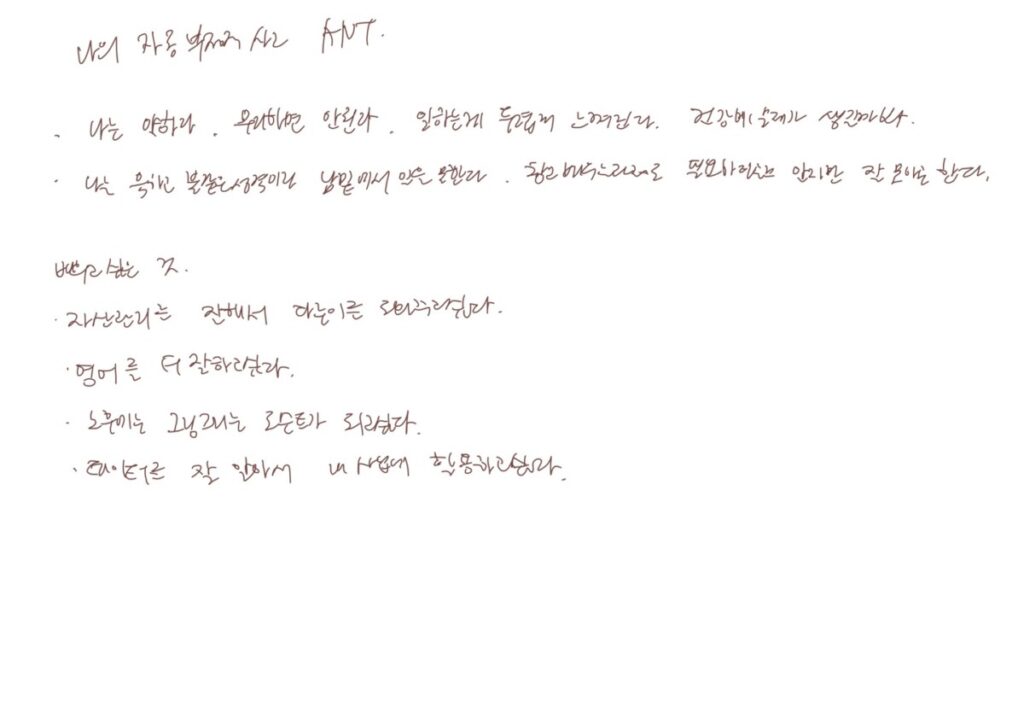 나의 자동 부정적 사고 ANT.
· 나는 약하다. 무리하면 안된다. 일하는게 두렵게 느껴진다. 건강에 문제가 생길까봐.
· 나는 욱하고 불같은 성격이라 남밑에서 일은 못한다. 참고 배우는 필요하지만 잘 못한다.
배우고 싶은 것.
· 자산관리는 잘해서 다운이를 도와주고싶다.
· 영어를 더 잘하고싶다.
· 노후에는 그림그리는 되고싶다.
· 데이터를 잘 알아서 내 사업에 활용하고싶다.